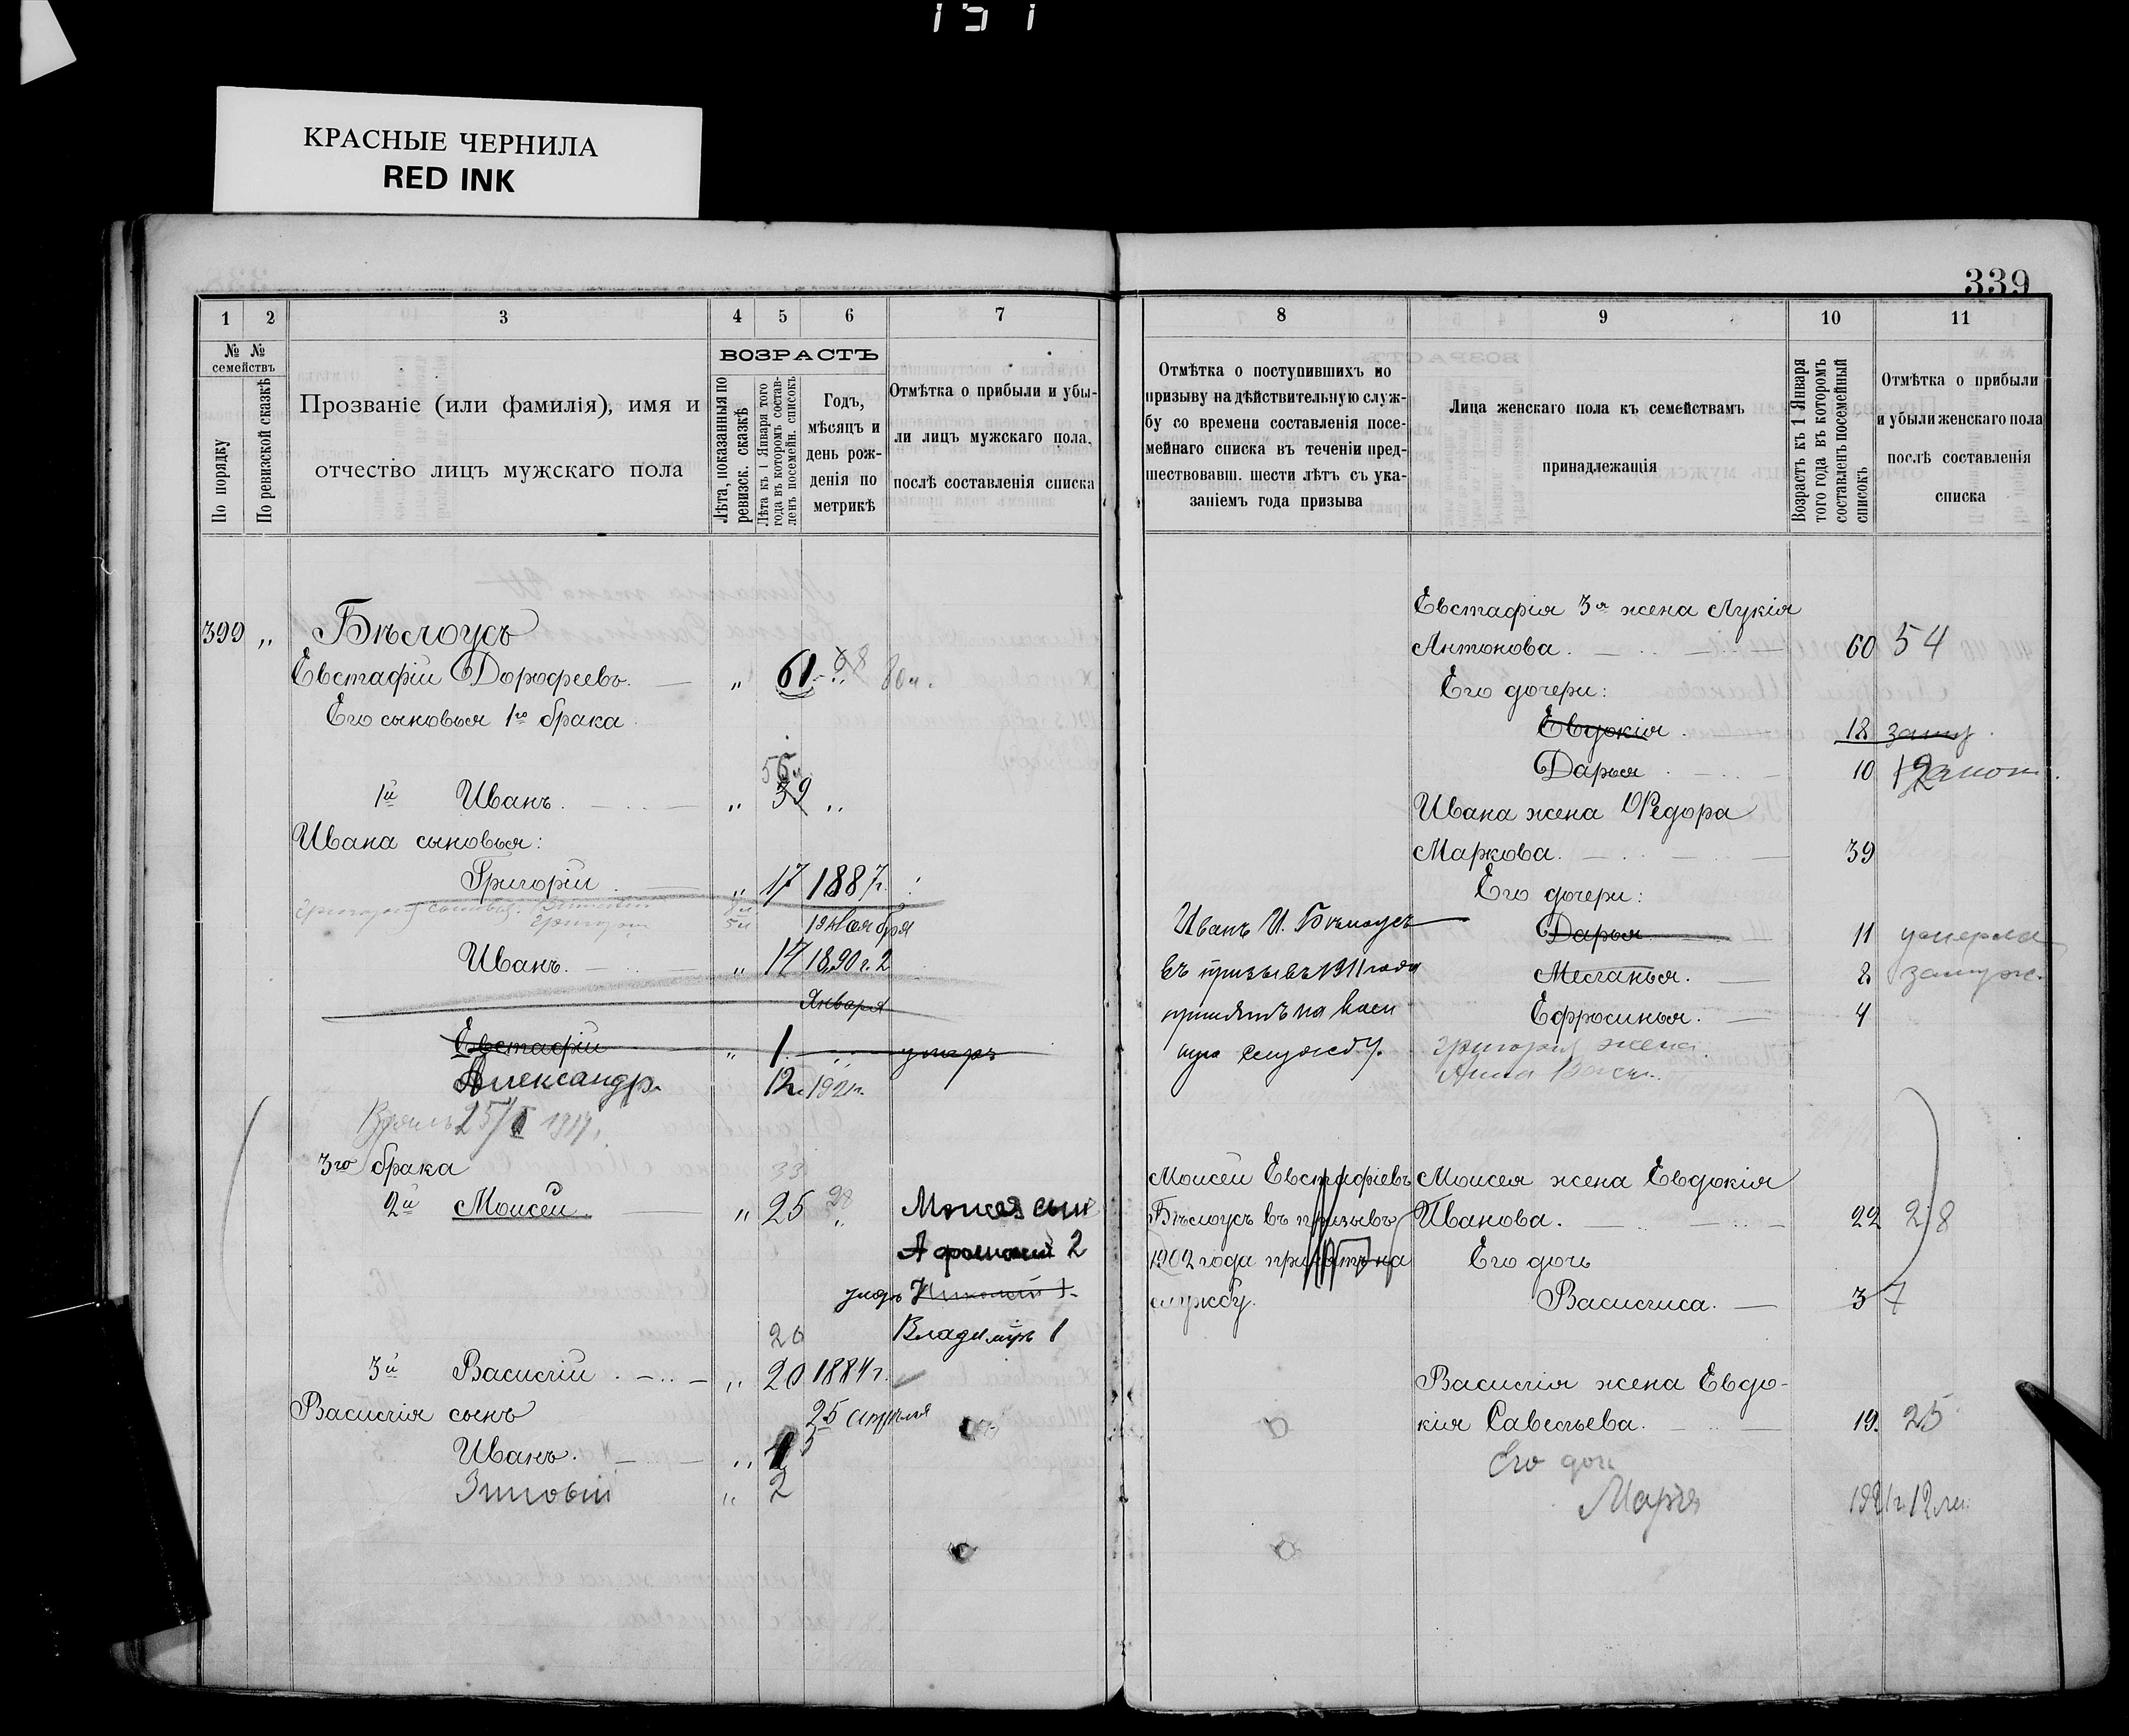 КРАСНЫЕ ЧЕРНИЛА
RED INK
339
1 2 3 4 5 6 7
№ № семействъ
По порядку
По ревизской сказкѣ
Прозваніе (или фамилія), имя и
отчество лицъ мужскаго пола
ВОЗРАСТЪ
Лѣта, показанныя по
ревизск. сказкѣ
Лѣта къ 1 Января того
года въ которомъ состав-
ленъ посемейн. списокъ
Годъ,
мѣсяцъ и
день рож-
денія по
метрикѣ
Отмѣтка о прибыли и убы-
ли лицъ мужскаго пола,
послѣ составленія списка
399 „ Бѣлоусъ
Евстафій Дорофеевъ. „ 61 68 80 л.
Его сыновья 1го брака
56 л.
1й Иванъ. „ 39 „
Ивана сыновья:
Григорій „ 17 1887 г.
19 Ноября
Иванъ. „ 14 1890 г. 2
Января
Евстафій „ 1 „ умеръ
Александр. 12 л 1901 г.
25/I 1914.
3го брака 33
2й Моисей. „ 25 28 „ Моисея сын
Афанасий 2
умер Николай 1
26 Владимиръ 1
3й Василій „ 20 1884 г.
Василія сынъ 25 апреля
Иванъ. „ 1 5
Зиновій „ 2
8 9 10 11
Отмѣтка о поступившихъ по
призыву на дѣйствительную служ-
бу со времени составленія посе-
мейнаго списка въ теченіи пред-
шествовавш. шести лѣтъ съ ука-
заніемъ года призыва
Лица женскаго пола къ семействамъ
принадлежащія
Возрастъ къ 1 Января
того года въ которомъ
составленъ посемейный
списокъ
Отмѣтка о прибыли
и убыли женскаго пола
послѣ составленія
списка
Евстафія 3я жена Лукія
Антонова. 60 54
Его дочери:
Евдокія 18 замуж.
Дарья 10
Ивана жена Федора
Маркова. 39
Его дочери:
Иванъ И. Бѣлоусъ
Дарья 11 умерла
въ призывъ 1911 года
Меланья. 8 замуж.
принятъ на воен
Ефросинья. 4
ную службу.
Григорія жена
Анна
Моисей Евстафіевъ
Бѣлоусъ въ призывъ
1902 года принятъ на
службу.
Моисея жена Евдокія
Иванова. 22 28
Его дочь
Василиса. 3 7
Василія жена Евдо-
кія Савельева. 19. 25
Его доч
Марія 1901 г. 12 ли